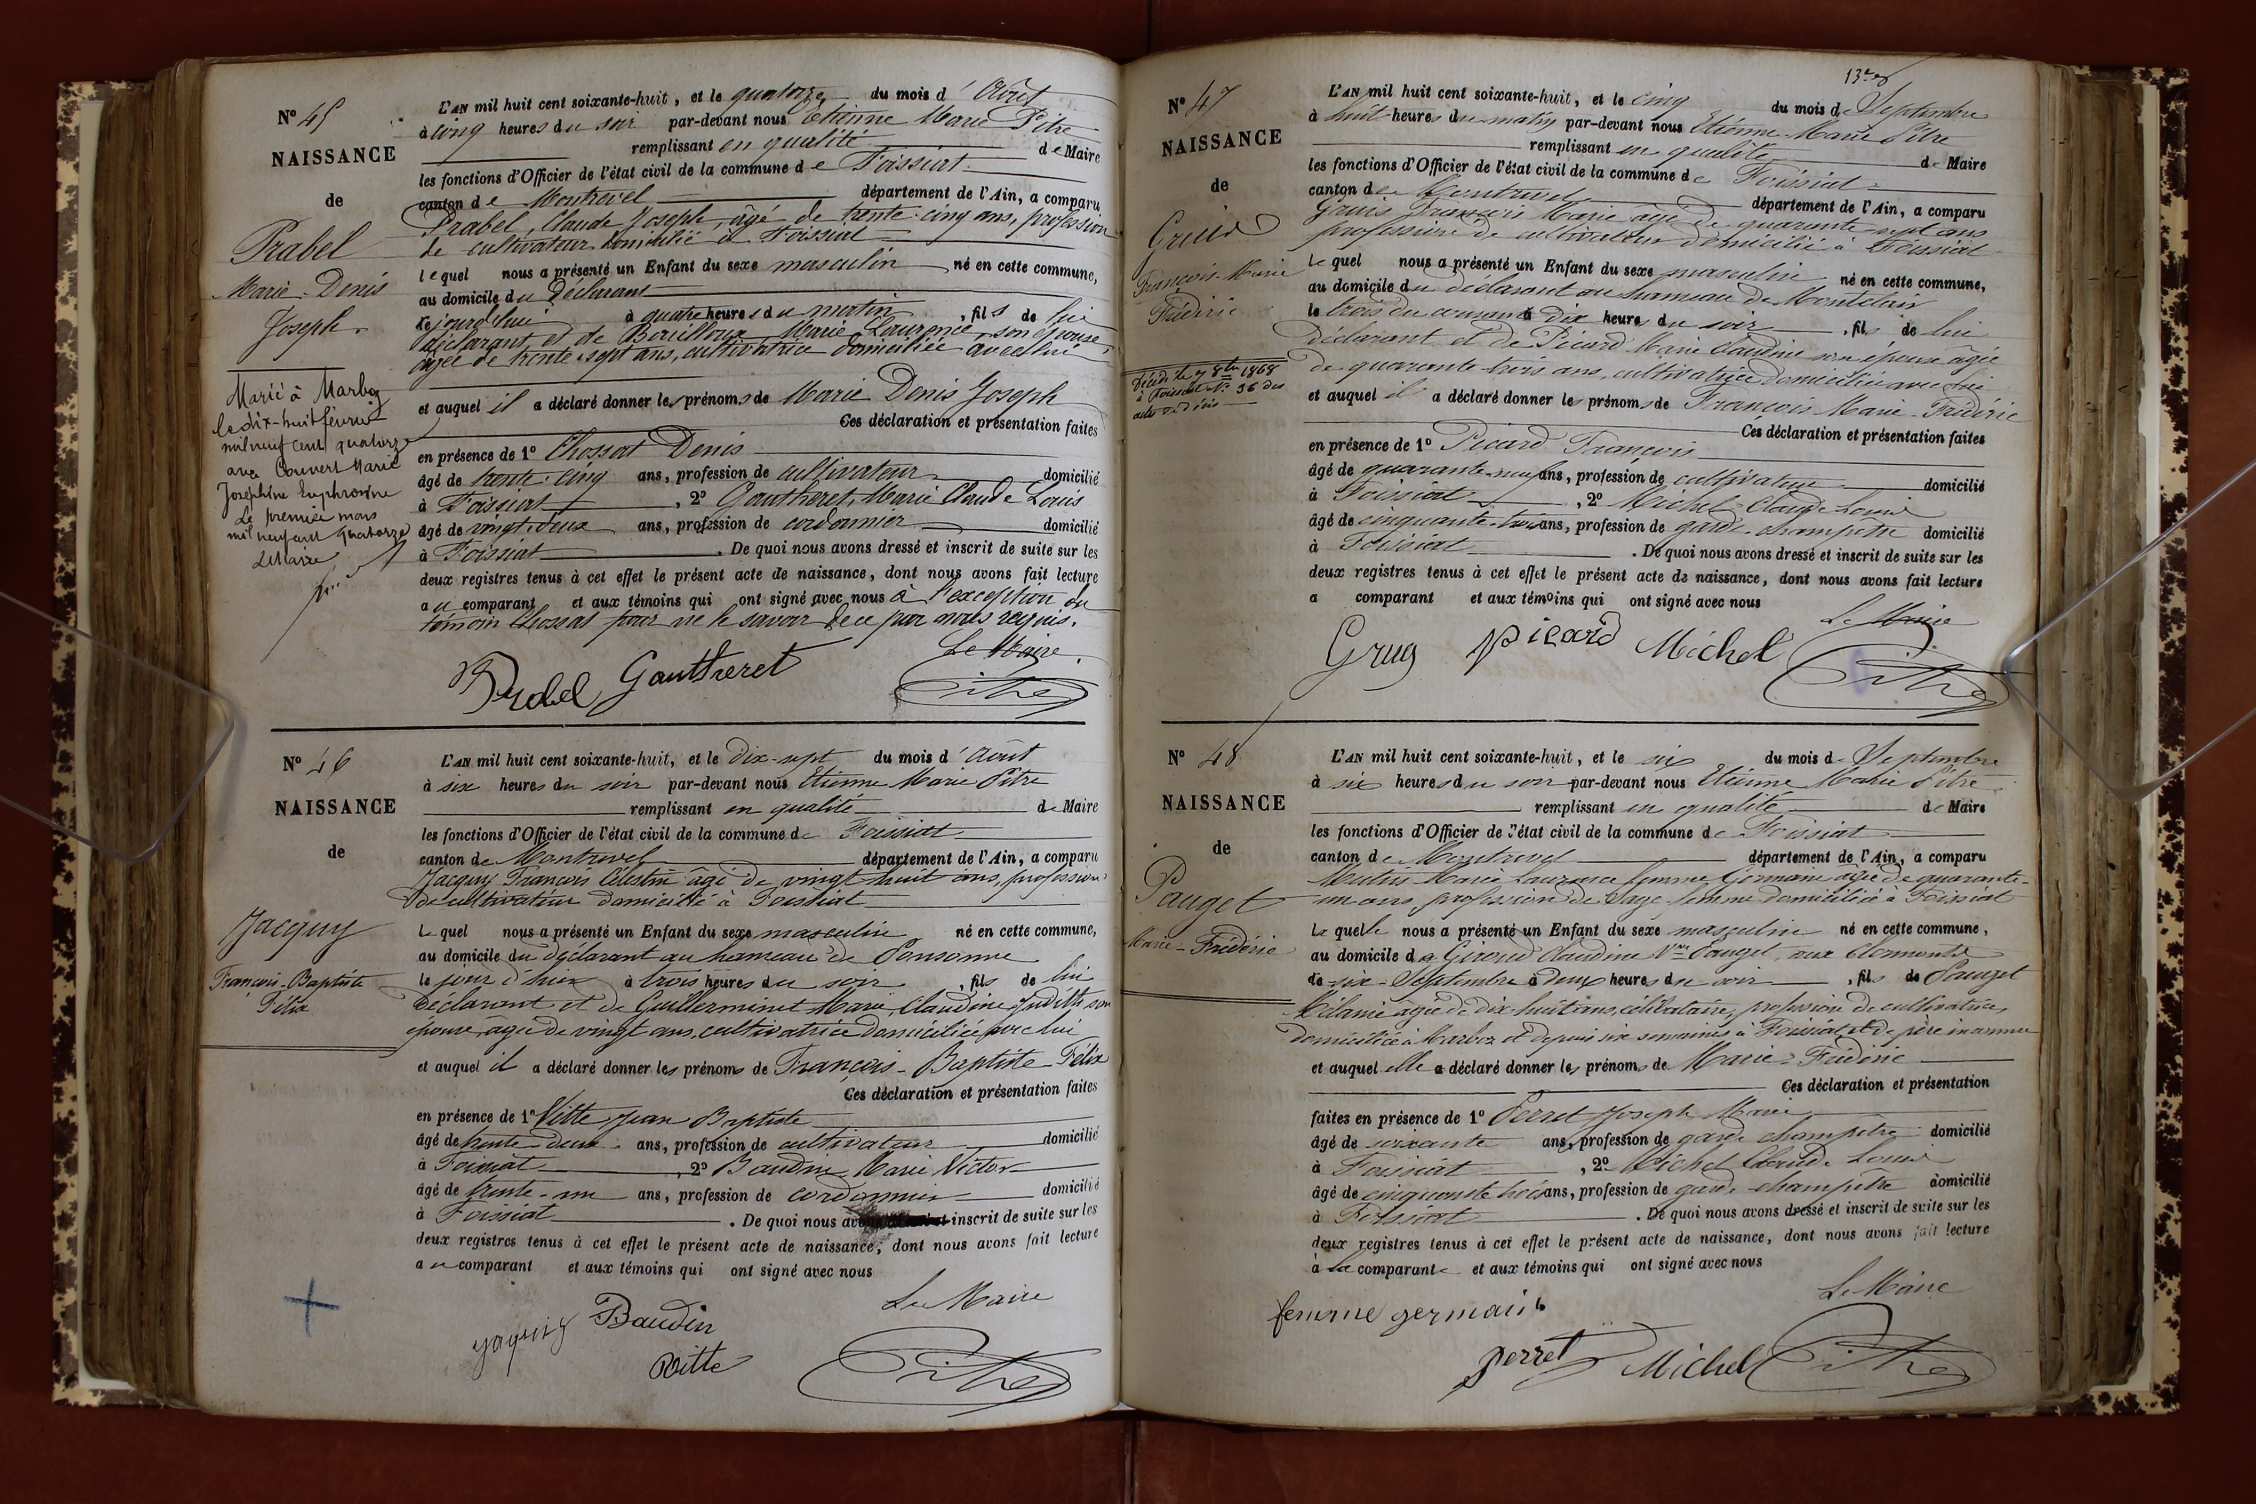 N° 45
NAISSANCE
de
Prabel
Marie Denis
Joseph
Marié à Marboz
le dix-huit février
mil neuf cent quatorze
avec Convert Marie
Joséphine Euphrosine
Le premier mars
mil neuf cent quatorze
Le Maire
L'AN mil huit cent soixante-huit, et le quatorze du mois d'Août
à cinq heures du soir par-devant nous Etienne Marie Pitre
remplissant en qualité de Maire
les fonctions d'Officier de l'état civil de la commune de Foissiat
canton de Montrevel département de l'Ain, a comparu
Prabel, Claude Joseph, âgé de trente-cinq ans, profession
de cultivateur domicilié à Foissiat
lequel nous a présenté un Enfant du sexe masculin né en cette commune,
au domicile du déclarant
le jourd'hui à quatre heures du matin, fils de lui
déclarant et de Bouilloux Marie Laurence, son épouse,
âgée de trente-sept ans, cultivatrice domiciliée avec lui
et auquel il a déclaré donner les prénoms de Marie Denis Joseph
Ces déclaration et présentation faites
en présence de 1° Chossat Denis
âgé de trente-cinq ans, profession de cultivateur domicilié
à Foissiat, 2° Gautheret, Marie Claude Louis
âgé de vingt-deux ans, profession de cordonnier domicilié
à Foissiat. De quoi nous avons dressé et inscrit de suite sur les
deux registres tenus à cet effet le présent acte de naissance, dont nous avons fait lecture
au comparant et aux témoins qui ont signé avec nous à l'exception du
témoin Chossat pour ne le savoir de ce par nous requis.
Le Maire
Prabel Gautheret Pitre
N° 46
NAISSANCE
de
Jacquy
François-Baptiste
Félix
L'AN mil huit cent soixante-huit, et le dix-sept du mois d'Août
à six heures du soir par-devant nous Etienne Marie Pitre
remplissant en qualité de Maire
les fonctions d'Officier de l'état civil de la commune de Foissiat
canton de Montrevel département de l'Ain, a comparu
Jacquy François Célestin âgé de vingt huit ans, profession
de cultivateur domicilié à Foissiat
lequel nous a présenté un Enfant du sexe masculin né en cette commune,
au domicile du déclarant au hameau de Ponsonne
le jour d'hier à trois heures du soir, fils de lui
déclarant et de Guillerminet Marie Claudine Judith son
épouse, âgée de vingt ans, cultivatrice domiciliée avec lui
et auquel il a déclaré donner les prénoms de François-Baptiste Félix
Ces déclaration et présentation faites
en présence de 1° Vitte Jean Baptiste
âgé de trente-deux ans, profession de cultivateur domicilié
à Foissiat, 2° Baudin Marie Victor
âgé de trente-un ans, profession de cordonnier domicilié
à Foissiat. De quoi nous inscrit de suite sur les
deux registres tenus à cet effet le présent acte de naissance, dont nous avons fait lecture
au comparant et aux témoins qui ont signé avec nous
Le Maire
Baudin
Vitte Pitre
13
N° 47
NAISSANCE
de
François-Marie
Frédéric
Décédé le 7 8bre 1868
à Foissiat N° 36 des
actes décès
L'AN mil huit cent soixante-huit, et le cinq du mois de Septembre
à huit heures du matin par-devant nous Etienne Marie Pitre
remplissant en qualité de Maire
les fonctions d'Officier de l'état civil de la commune de Foissiat
canton de Montrevel département de l'Ain, a comparu
François Marie âgé de quarante-sept ans
profession de cultivateur domicilié à Foissiat
lequel nous a présenté un Enfant du sexe masculin né en cette commune,
au domicile du déclarant au hameau de Montclair
le trois du courant à dix heures du soir, fils de lui
déclarant et de Picard Marie Claudine son épouse âgée
de quarante-trois ans, cultivatrice domiciliée avec lui
et auquel il a déclaré donner les prénoms de François-Marie-Frédéric
Ces déclaration et présentation faites
en présence de 1° Picard François
âgé de quarante-neuf ans, profession de cultivateur domicilié
à Foissiat, 2° Michel Claude Louis
âgé de cinquante-trois ans, profession de garde-champêtre domicilié
à Foissiat. De quoi nous avons dressé et inscrit de suite sur les
deux registres tenus à cet effet le présent acte de naissance, dont nous avons fait lecture
a comparant et aux témoins qui ont signé avec nous
Le Maire
picard Michel Pitre
N° 48
NAISSANCE
de
Pauget
Marie-Frédéric
L'AN mil huit cent soixante-huit, et le six du mois de Septembre
à six heures du soir par-devant nous Etienne Marie Pitre
remplissant en qualité de Maire
les fonctions d'Officier de l'état civil de la commune de Foissiat
canton de Montrevel département de l'Ain, a comparu
Marie Laurence femme Germain âgée de quarante-
un ans, profession de Sage-femme domiciliée à Foissiat
laquelle nous a présenté un Enfant du sexe masculin né en cette commune,
au domicile de Giroud Claudine Vve Pauget, aux Clermonts
le six-Septembre à deux heures du soir, fils de Pauget
Mélanie âgée de dix huit ans, célibataire, profession de cultivatrice,
domiciliée à Marboz et depuis six semaines à Foissiat et de père inconnu
et auquel elle a déclaré donner les prénoms de Marie-Frédéric
Ces déclaration et présentation
faites en présence de 1° Perret Joseph Marie
âgé de soixante ans, profession de garde champêtre domicilié
à Foissiat, 2° Michel Claude Louis
âgé de cinquante trois ans, profession de garde-champêtre domicilié
à Foissiat. De quoi nous avons dressé et inscrit de suite sur les
deux registres tenus à cet effet le présent acte de naissance, dont nous avons fait lecture
à la comparante et aux témoins qui ont signé avec nous
Le Maire
femme germain
perret Michel Pitre